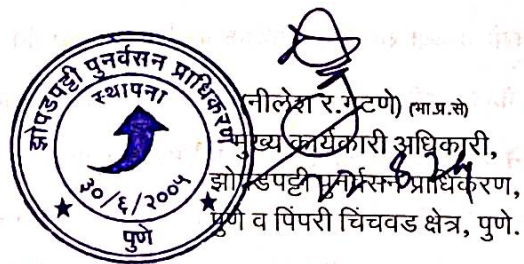 झोपडपट्टी पुनर्वसन प्राधिकरण
स्थापना
३०/६/२००५
पुणे
(नीलेश र.गटणे) (भा.प्र.से)
मुख्य कार्यकारी अधिकारी,
झोपडपट्टी पुनर्वसन प्राधिकरण,
पुणे व पिंपरी चिंचवड क्षेत्र, पुणे.